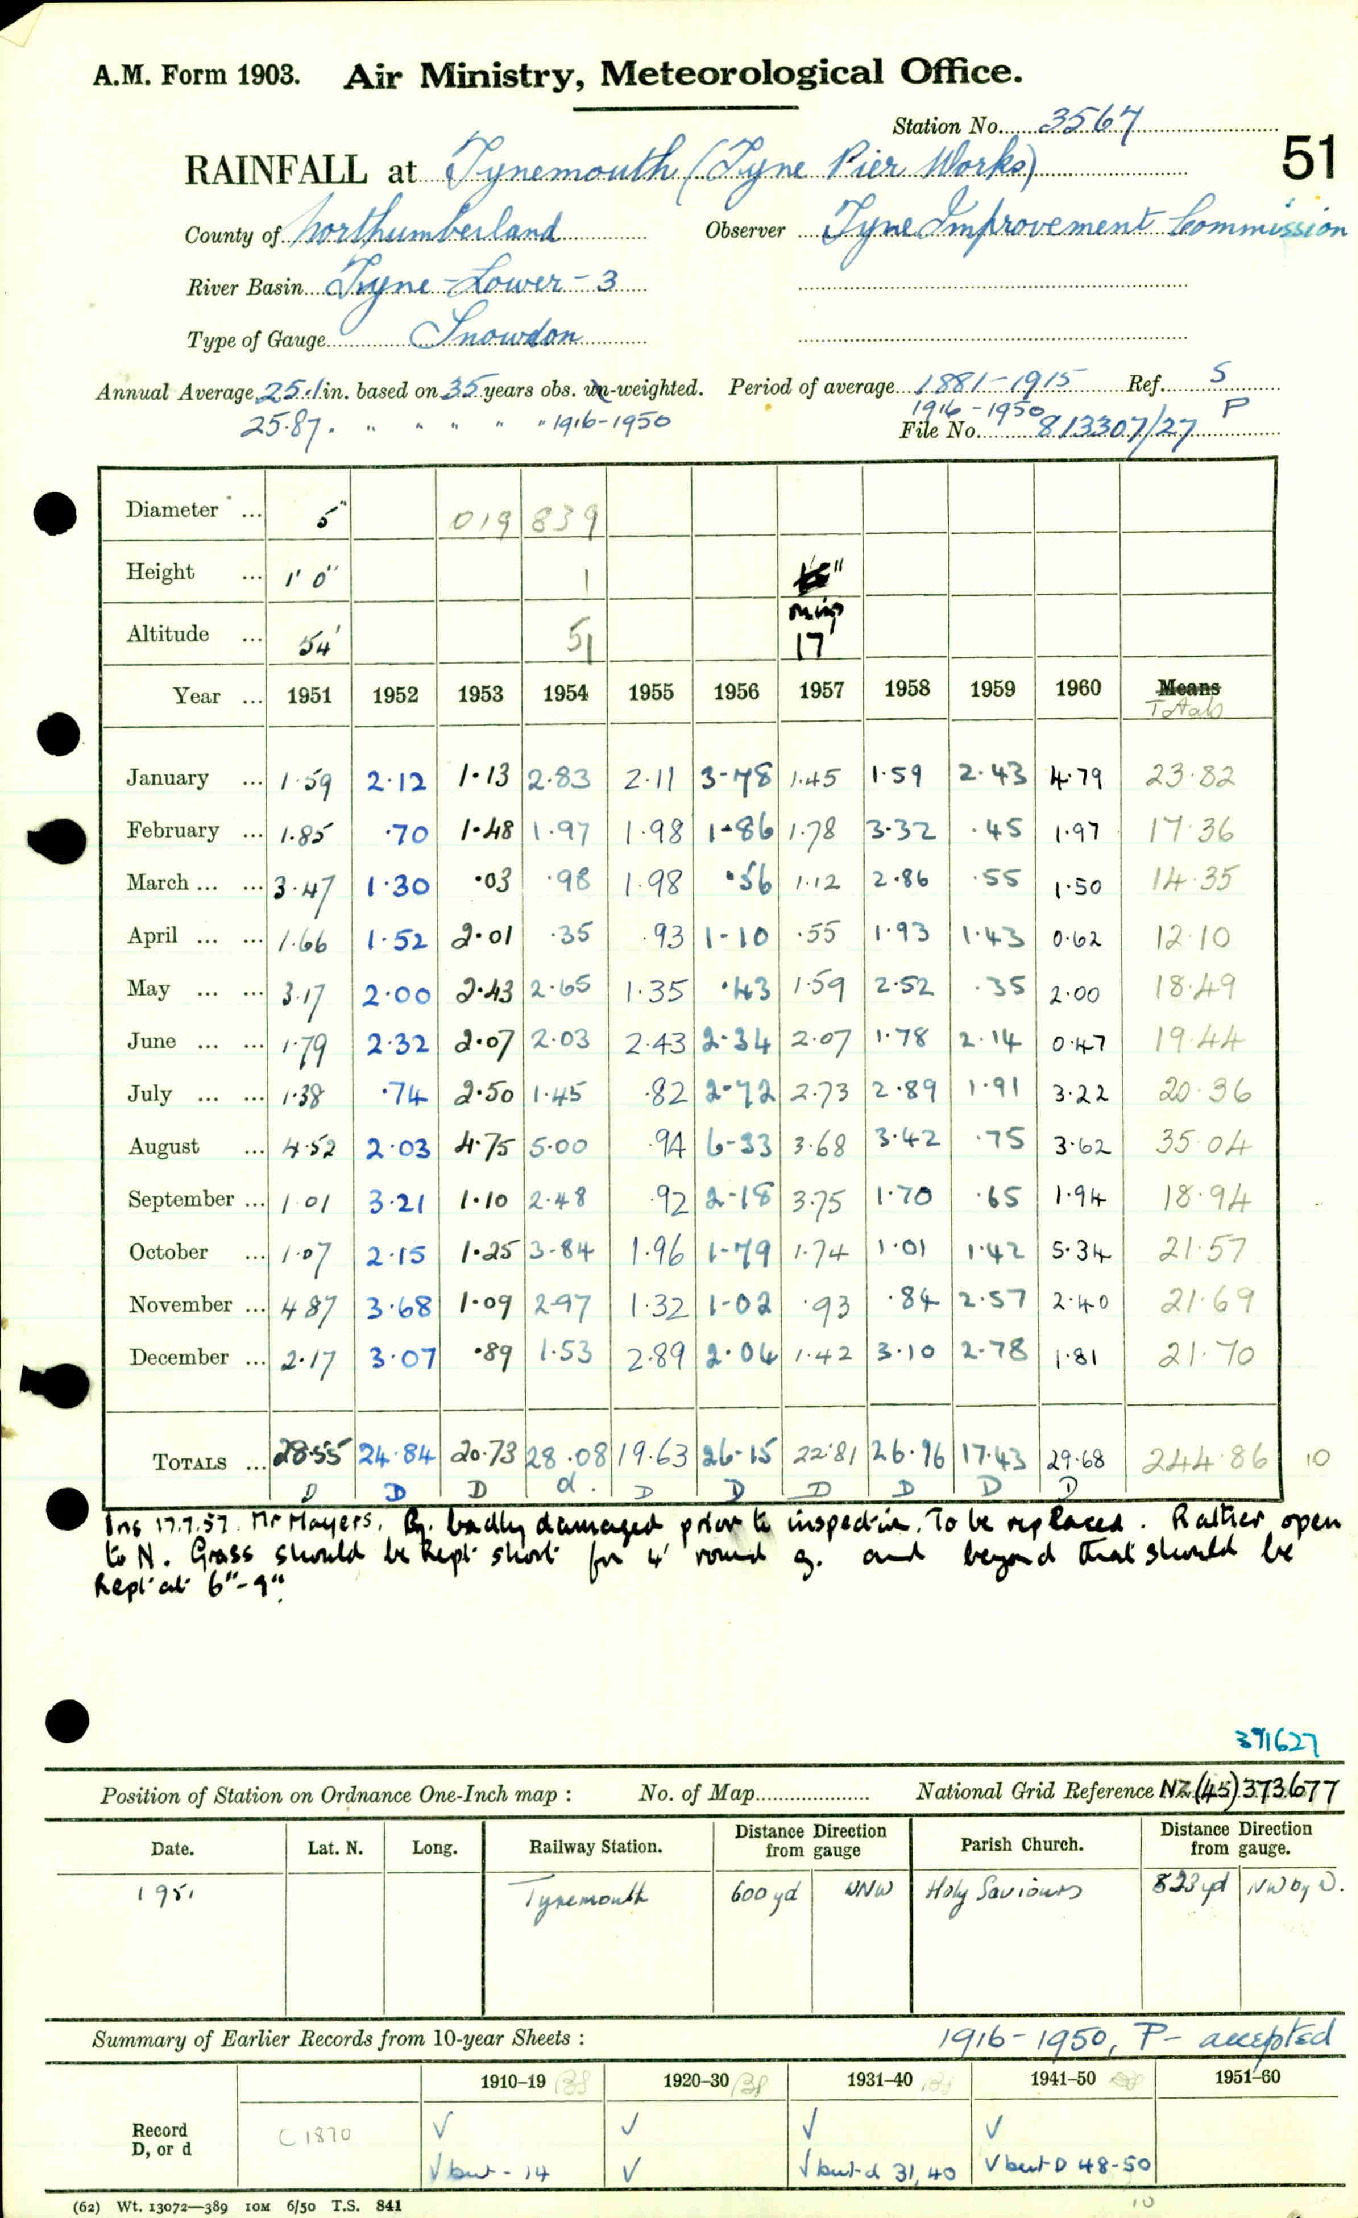 A.M. Form 1903. Air Ministry, Meteorological Office.
Station No. 3567
51
RAINFALL at Tynemouth (Tyne Pier Works)
County of Northumberland Observer Tyne Improvement Commission
River Basin Tyne - Lower - 3
Type of Gauge Snowdon
Annual Average 25.1 in. based on 35 years obs. un-weighted. Period of average 1881-1915 Ref. S
25.87. " " " " " 1916-1950 1916-1950 P
File No. 813307/27
Diameter ... 5" 019 839
Height ... 1' 0" 1
Altitude ... 54' 51 17'
Year ... 1951 1952 1953 1954 1955 1956 1957 1958 1959 1960 Means
Totals
January ... 1.59 2.12 1.13 2.83 2.11 3.78 1.45 1.59 2.43 4.79 23.82
February ... 1.85 .70 1.48 1.97 1.98 1.86 1.78 3.32 .45 1.97 17.36
March ... ... 3.47 1.30 .03 .98 1.98 .56 1.12 2.86 .55 1.50 14.35
April ... ... 1.66 1.52 2.01 .35 .93 1.10 .55 1.93 1.43 0.62 12.10
May ... ... 3.17 2.00 2.43 2.65 1.35 .43 1.59 2.52 .35 2.00 18.49
June ... ... 1.79 2.32 2.07 2.03 2.43 2.34 2.07 1.78 2.14 0.47 19.44
July ... ... 1.38 .74 2.50 1.45 .82 2.72 2.73 2.89 1.91 3.22 20.36
August ... 4.52 2.03 4.75 5.00 .94 6.33 3.68 3.42 .75 3.62 35.04
September ... 1.01 3.21 1.10 2.48 .92 2.18 3.75 1.70 .65 1.94 18.94
October ... 1.07 2.15 1.25 3.84 1.96 1.79 1.74 1.01 1.42 5.34 21.57
November ... 4.87 3.68 1.09 2.97 1.32 1.02 .93 .84 2.57 2.40 21.69
December ... 2.17 3.07 .89 1.53 2.89 2.04 1.42 3.10 2.78 1.81 21.70
TOTALS ... 28.55 24.84 20.73 28.08 19.63 26.15 22.81 26.96 17.43 29.68 244.86 10
D D D d. D D D D D D
Ins 17.7.57. Mr Mayers. Rg. badly damaged prior to inspection. To be replaced. Rather open
to N. Grass should be kept short for 4' round g. and beyond that should be
kept at 6"-9".
391627
Position of Station on Ordnance One-Inch map : No. of Map National Grid Reference NZ (45) 373677
Date. Lat. N. Long. Railway Station. Distance from Direction gauge Parish Church. Distance from Direction gauge.
1951 Tynemouth 600 yd WNW Holy Saviours 823 yd NW by W.
Summary of Earlier Records from 10-year Sheets : 1916-1950, P- accepted
1910-19 1920-30 1931-40 1941-50 1951-60
Record
D, or d C 1870 √ √ √ √
√ but - 14 √ √ but d 31, 40 √ but D 48-50
(62) Wt. 13072—389 10M 6/50 T.S. 841 10